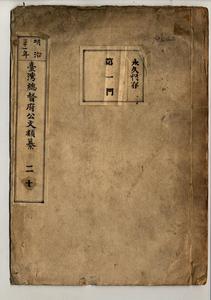 永久保存
第一門
明治
三一年
臺灣總督府公文類纂 二十